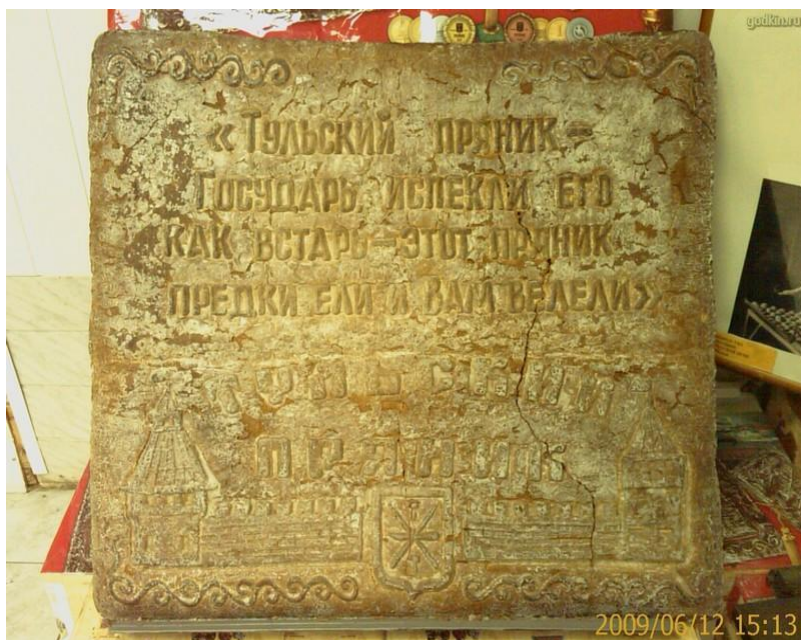 godkin.ru
« Тульский пряник –
Государь, испекли его
как встарь – этот пряник
предки ели и вам велели»
ТУЛЬСКИЙ
ПРЯНИК
2009/06/12 15:13